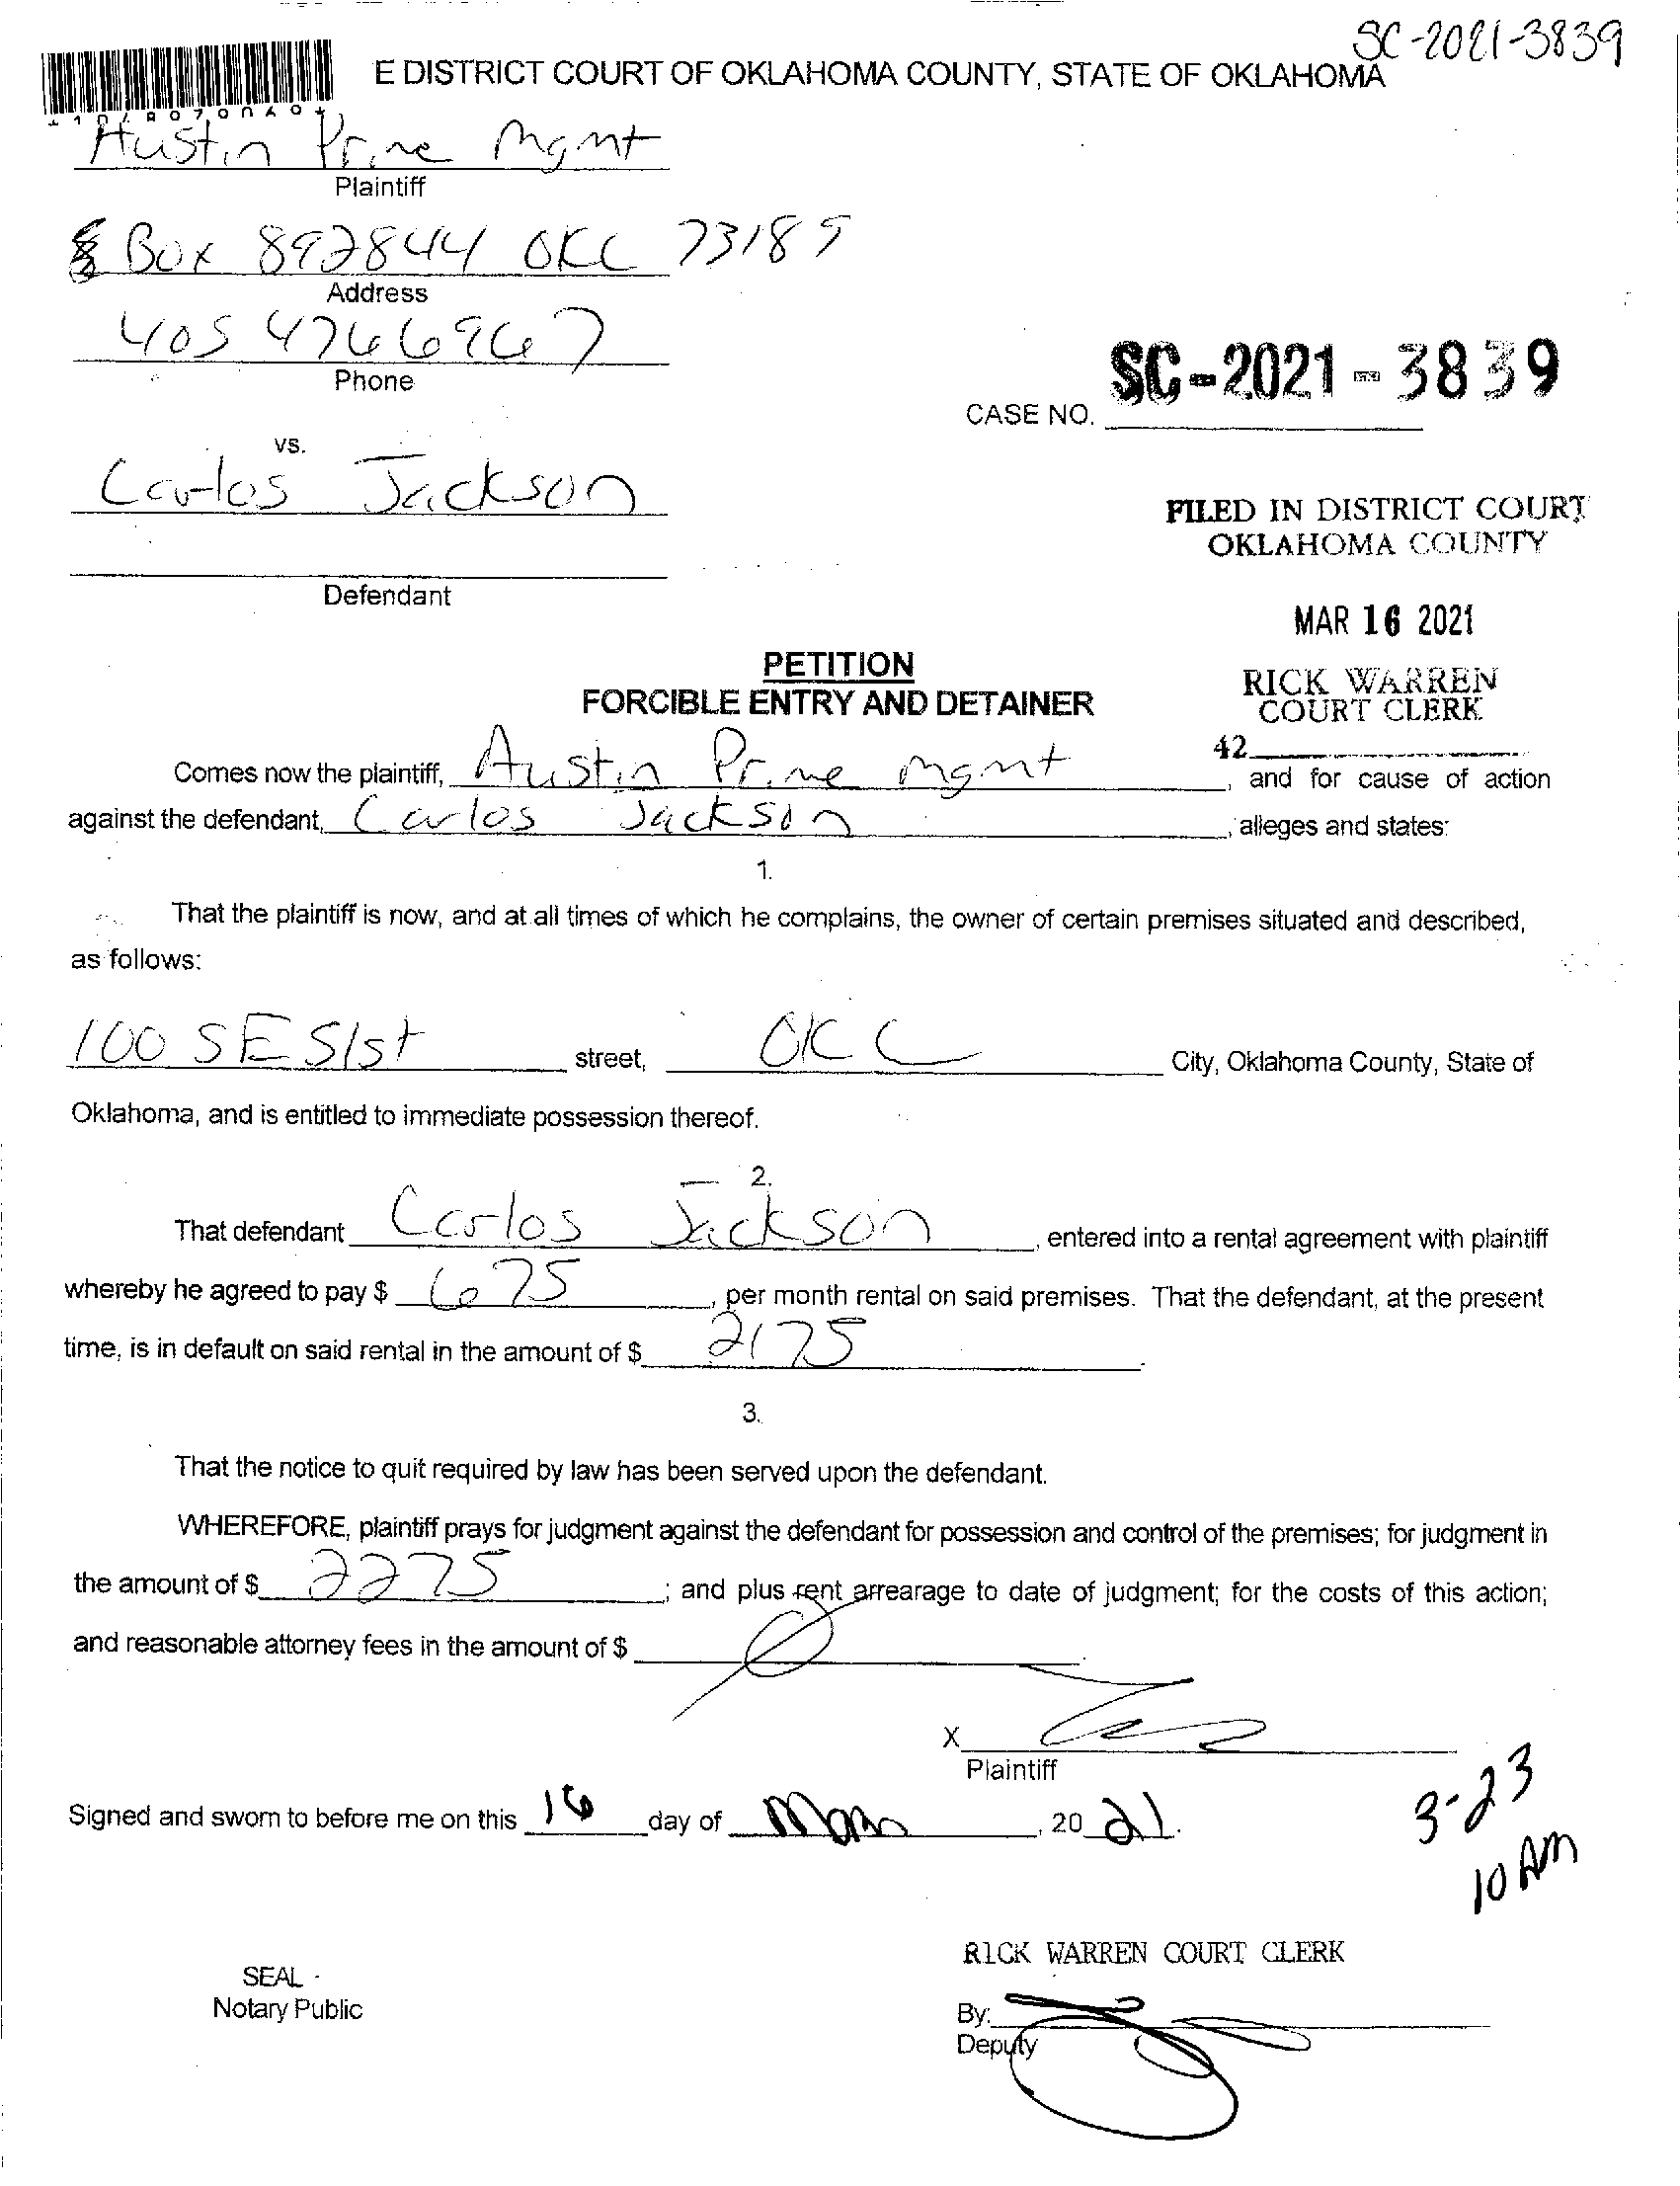 SC-2021-3839
E DISTRICT COURT OF OKLAHOMA COUNTY, STATE OF OKLAHOMA
Austin Prime Mgmt
Plaintiff
Box 892844 OKC 73189
Address
405 4766967
Phone
SC-2021-3839
CASE NO.
vs.
Carlos Jackson
FILED IN DISTRICT COURT
OKLAHOMA COUNTY
Defendant
MAR 16 2021
PETITION
RICK WARREN
FORCIBLE ENTRY AND DETAINER
COURT CLERK
42
Comes now the plaintiff, Austin Prime mgmt, and for cause of action
against the defendant, Carlos Jackson, alleges and states:
1.
That the plaintiff is now, and at all times of which he complains, the owner of certain premises situated and described,
as follows:
100 SE 51st street, OKC City, Oklahoma County, State of
Oklahoma, and is entitled to immediate possession thereof.
2.
That defendant Carlos Jackson, entered into a rental agreement with plaintiff
whereby he agreed to pay $ 675, per month rental on said premises. That the defendant, at the present
time, is in default on said rental in the amount of $ 2175.
3.
That the notice to quit required by law has been served upon the defendant.
WHEREFORE, plaintiff prays for judgment against the defendant for possession and control of the premises; for judgment in
the amount of $ 2275; and plus rent arrearage to date of judgment; for the costs of this action;
and reasonable attorney fees in the amount of $
X
Plaintiff
Signed and sworn to before me on this 16 day of Mar, 2021.
3-23
10 AM
RICK WARREN COURT CLERK
SEAL
Notary Public
By:
Deputy